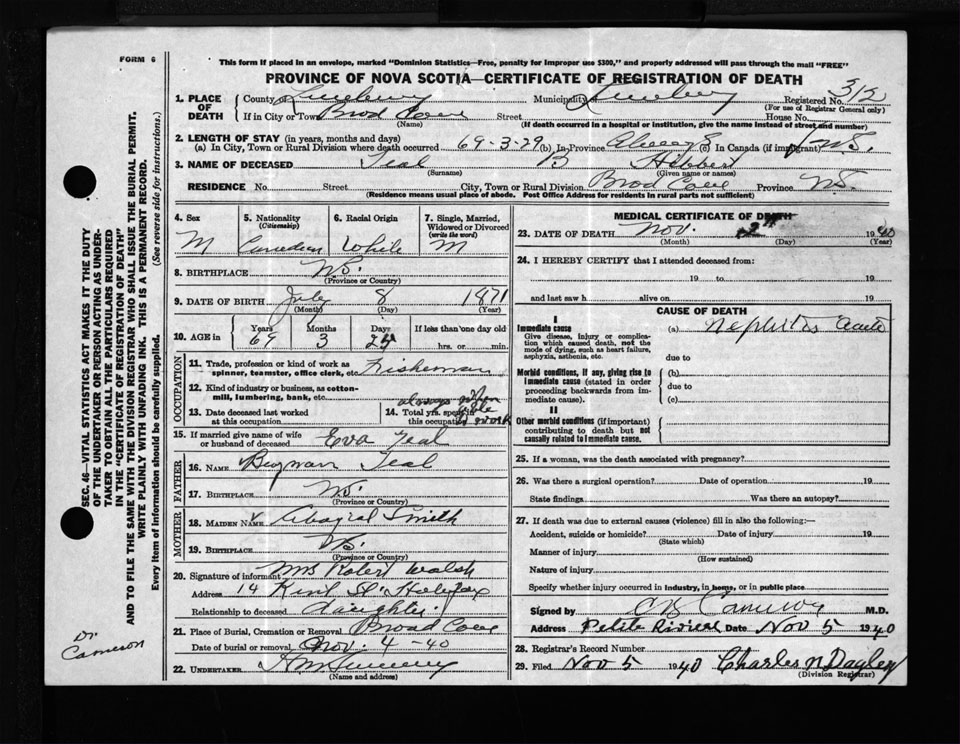 FORM 6
This form if placed in an envelope, marked "Dominion Statistics—Free, penalty for improper use $300," and properly addressed will pass through the mail "FREE"
PROVINCE OF NOVA SCOTIA—CERTIFICATE OF REGISTRATION OF DEATH
1. PLACE OF DEATH
County of Lunenburg Municipality Lunenburg Registered No. 312
(For use of Registrar General only)
If in City or Town Brod Cove Street House No.
(Name) (If death occurred in a hospital or institution, give the name instead of street and number)
2. LENGTH OF STAY (in years, months and days)
(a) In City, Town or Rural Division where death occurred 69-3-29 (b) In Province (c) In Canada (if immigrant) N.S.
3. NAME OF DECEASED Teal B Hibbert
(Surname) (Given name or names)
RESIDENCE No. Street City, Town or Rural Division Brod Cove Province N.S.
(Residence means usual place of abode. Post Office Address for residents in rural parts not sufficient)
4. Sex M
5. Nationality (Citizenship) Canadian
6. Racial Origin White
7. Single, Married, Widowed or Divorced (write the word) M
8. BIRTHPLACE N.S.
(Province or Country)
9. DATE OF BIRTH July 8 1871
(Month) (Day) (Year)
10. AGE in Years 69 Months 3 Days If less than one day old hrs. or min.
OCCUPATION
11. Trade, profession or kind of work as spinner, teamster, office clerk, etc. Fisherman
12. Kind of industry or business, as cotton-mill, lumbering, bank, etc.
13. Date deceased last worked at this occupation
14. Total yrs. spent in this occupation always when able to work
15. If married give name of wife or husband of deceased Eva Teal
FATHER
16. NAME Teal
17. BIRTHPLACE N.S.
(Province or Country)
MOTHER
18. MAIDEN NAME Smith
19. BIRTHPLACE N.S.
(Province or Country)
20. Signature of informant Mrs Robert Walsh
Address 14 Kent St. Halifax
Relationship to deceased daughter
21. Place of Burial, Cremation or Removal Broad Cove
Date of burial or removal Nov. 4-40
22. UNDERTAKER
(Name and address)
MEDICAL CERTIFICATE OF DEATH
23. DATE OF DEATH Nov. 2 1940
(Month) (Day) (Year)
24. I HEREBY CERTIFY that I attended deceased from:
19 to 19
and last saw h alive on 19
CAUSE OF DEATH
I
Immediate cause
Give disease, injury or complication which caused death, not the mode of dying, such as heart failure, asphyxia, asthenia, etc.
(a) Nephritis acute
due to
Morbid conditions, if any, giving rise to immediate cause (stated in order proceeding backwards from immediate cause).
(b)
due to
(c)
II
Other morbid conditions (if important) contributing to death but not causally related to immediate cause.
25. If a woman, was the death associated with pregnancy?
26. Was there a surgical operation? Date of operation 19
State findings Was there an autopsy?
27. If death was due to external causes (violence) fill in also the following:—
Accident, suicide or homicide? Date of injury 19
(State which)
Manner of injury
(How sustained)
Nature of injury
Specify whether injury occurred in industry, in home, or in public place
Signed by C B Cameron M.D.
Address Petite Riviere Date Nov 5 1940
28. Registrar's Record Number
29. Filed Nov 5 1940 Charles N Dagley
(Division Registrar)
SEC. 46—VITAL STATISTICS ACT MAKES IT THE DUTY
OF THE UNDERTAKER OR PERSON ACTING AS UNDER-
TAKER TO OBTAIN ALL THE PARTICULARS REQUIRED
IN THE "CERTIFICATE OF REGISTRATION OF DEATH"
AND TO FILE THE SAME WITH THE DIVISION REGISTRAR WHO SHALL ISSUE THE BURIAL PERMIT.
WRITE PLAINLY WITH UNFADING INK. THIS IS A PERMANENT RECORD.
Every item of information should be carefully supplied. (See reverse side for instructions.)
Dr
Cameron